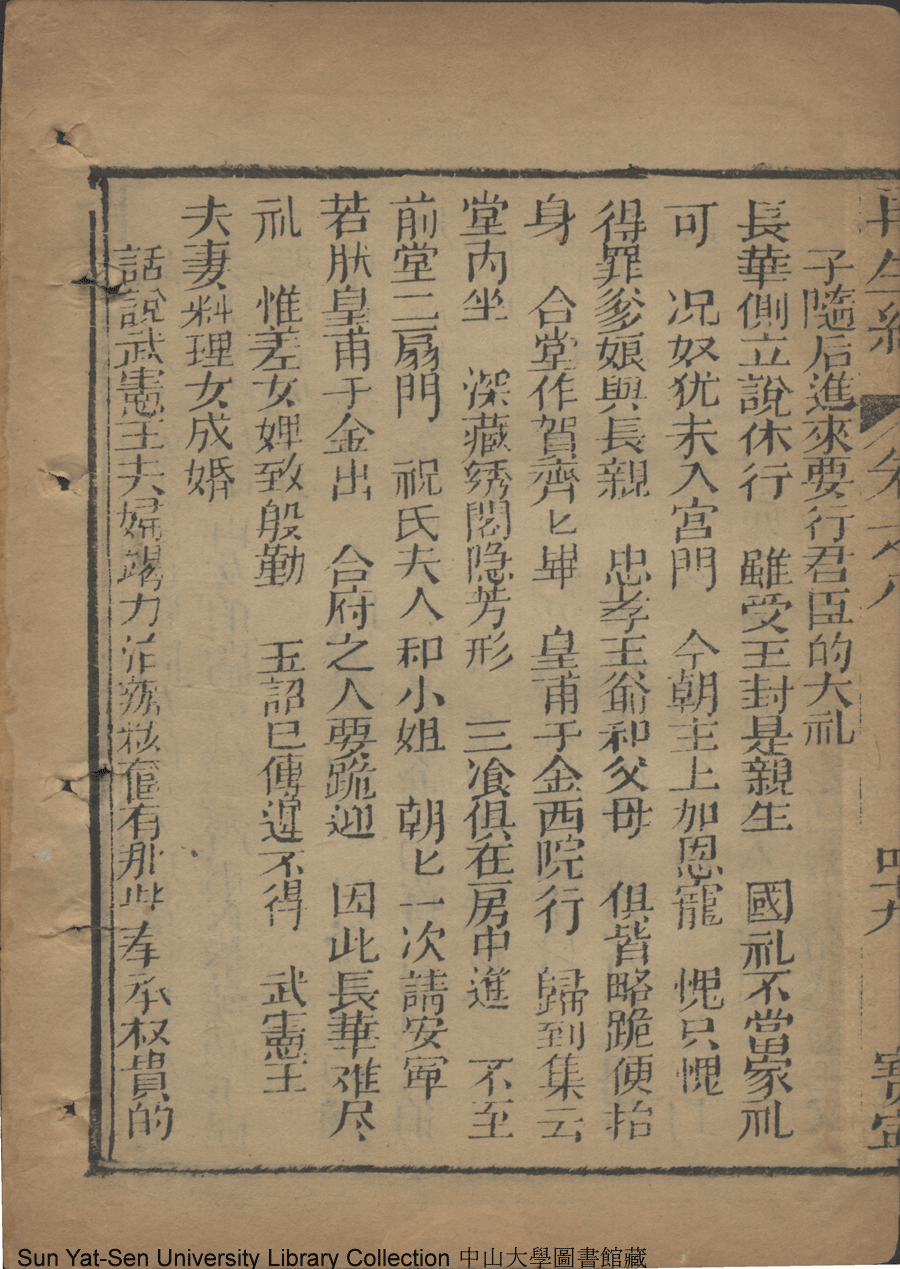 再生緣 卷之八 四十九 寶寧
子隨后進來要行君臣的大礼
長華側立說休行 雖受王封是親生 國礼不當家礼
可 况奴犹未入宫門 今朝主上加恩寵 愧只愧
得罪爹娘與長親 忠孝王爺和父母 俱皆略跪便抬
身 合堂作賀齊匕畢 皇甫于金西院行 歸到集云
堂内坐 深藏綉閣隐芳形 三飡俱在房中進 不至
前堂二扇門 祝氏夫人和小姐 朝匕一次請安寧
若肰皇甫于金出 合府之人要跪迎 因此長華难尽
礼 惟差女婢致殷勤 玉詔已傳遲不得 武憲王
夫妻料理女成婚
話說武憲王夫婦竭力治辦粧奩有那些奉承权貴的
Sun Yat-Sen University Library Collection 中山大學圖書館藏